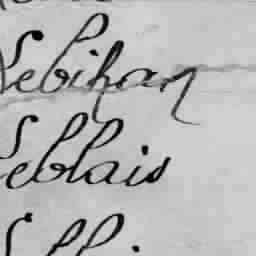 Lebihan
Leblais